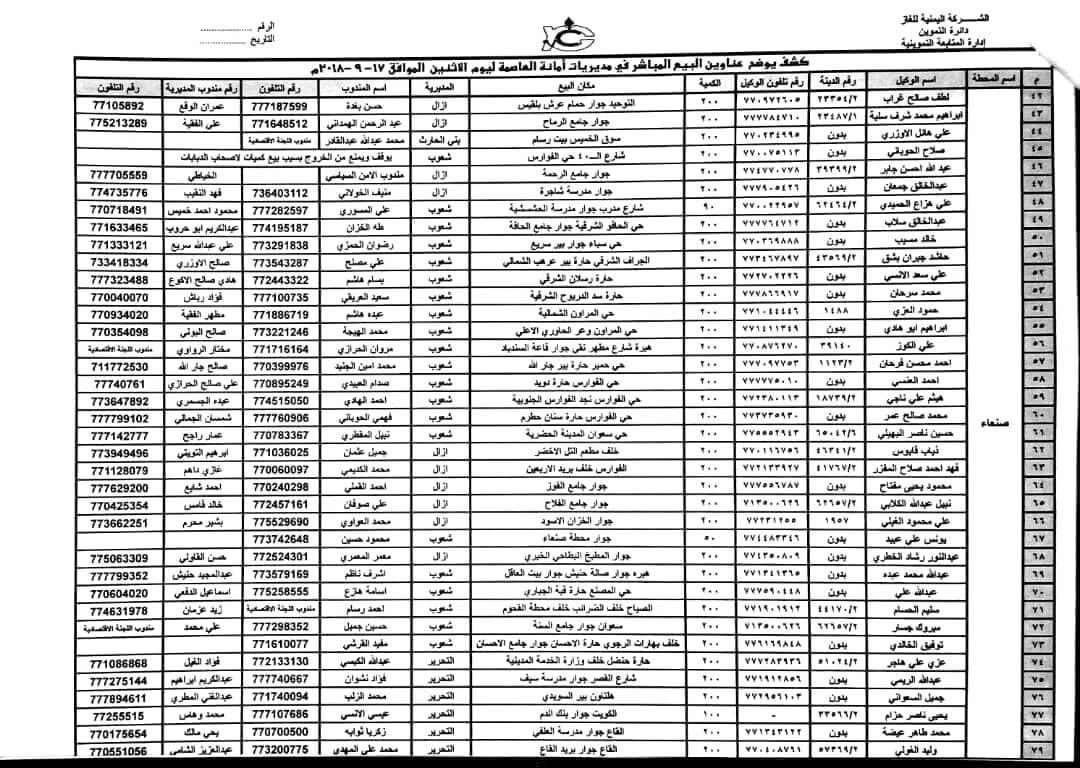 الشـــركة اليمنية للغاز
دائرة التموين
إدارة المتابعة التموينية
الرقم ....................
التاريخ ..................
كشف يوضح عناوين البيع المباشر في مديريات أمانة العاصمة ليوم الاثنين الموافق ١٧-٩-٢٠١٨م
م اسم المحطة اسم الوكيل رقم الدينة رقم تلفون الوكيل الكمية مكان البيع المديرية اسم المندوب رقم التلفون رقم مندوب المديرية رقم التلفون
صنعاء
٤٢ لطف صالح غراب ٢٣٣٥٤/٢ ٧٧٠٩٧٢٦٠٥ ٢٠٠ التوحيد جوار حمام عرش بلقيس ازال حسن بغدة 777187599 عمران الوقع 77105892
٤٣ ابراهيم محمد شرف سلبة ٢٣٤٨٧/١ ٧٧٧٧٨٤٧١٠ ٢٠٠ جوار جامع الرماح ازال عبد الرحمن الهمداني 771648512 علي الفقية 775213289
٤٤ علي هائل الاوزري بدون ٧٧٠٢٣٤٩٩٥ ٢٠٠ سوق الخميس بيت رسام بني الحارث محمد عبدالله عبدالقادر مندوب اللجنة الاقتصادية
٤٥ صلاح الحوباني بدون ٧٧٠٠٧٥١١٣ ٢٠٠ شارع الـ٤٠ حي الفوارس شعوب يوقف ويمنع من الخروج بسبب بيع كميات لاصحاب الدبابات
٤٦ عبد الله احسن جابر ٣٩٣٩٩/٢ ٧٧٤٧٧٠٧٧٨ ٢٠٠ جوار جامع الرحمة ازال مندوب الامن السياسي الخياطي 777705559
٤٧ عبدالخالق جمعان بدون ٧٧٧٩٠٥٤٢٦ ٢٠٠ جوار مدرسة شاجرة ازال منيف الخولاني 736403112 فهد النقيب 774735776
٤٨ علي هزاع الحميدي ٦٢٤٦٤/٢ ٧٧٠٠٢٢٩٥٧ ٩٠ شارع مدرب جوار مدرسة الحشبشية شعوب علي المسوري 777282597 محمود احمد خميس 770718491
٤٩ عبدالخالق سلاب بدون ٧٧٧٧٦٤٧١٢ ٢٠٠ حي الحافو الشرقية جوار جامع الحافة شعوب طه الخزان 774195187 عبدالكريم ابو حروب 771633465
٥٠ خالد مسيب بدون ٧٧٠٣٦٩٨٨٨ ٢٠٠ حي سباء جوار بير سريع شعوب رضوان الحمزي 773291838 علي عبدالله سريع 771333121
٥١ حاشد جبران بشق ٤٣٥٦٩/٢ ٧٧٣٤٦٧٨٩٧ ٢٠٠ الجراف الشرقي حارة بير عرهب الشمالي شعوب علي مصلح 773543287 صالح الاوزري 733418334
٥٢ علي سعد الانسي بدون ٧٧٢٧٠٢٢٢٦ ٢٠٠ حارة رسلان الشرقي شعوب بسام هاشم 772443322 هادي صالح الاكوع 777323488
٥٣ محمد سرحان بدون ٧٧٧٨٦٦٩١٧ ٢٠٠ حارة سد الدربوح الشرقية شعوب سعيد العريقي 777100735 فؤاد رباش 770040070
٥٤ حمود العزي ١٤٨٨ ٧٧١٠٤٤٤٤٦ ٢٠٠ حي المراون الشمالية شعوب عبده هاشم 771886719 مطهر الفقية 770934020
٥٥ ابراهيم ابو هادي بدون ٧٧١٤١١٣٤٩ ٢٠٠ حي المراون وعر الحاوري الاعلي شعوب محمد الهيجة 773221246 صالح البوني 770354098
٥٦ علي الكوز ٣٩١٤٠ ٧٧٠٨٧٦٢٧٠ ٢٠٠ هبرة شارع مطهر نقي جوار قاعة السندباد شعوب مروان الحرازي 771716164 مختار الرواوي مندوب اللجنة الاقتصادية
٥٧ احمد محسن فرحان ١١٢٣/٢ ٧٧٧٠٩٧٧٥٣ ٢٠٠ حي حمير حارة بير جار الله شعوب محمد امين الجنيد 770399976 صالح جار الله 711772530
٥٨ احمد العنسي بدون ٧٧٧٧٧٥٠١٠ ٢٠٠ حي الفوارس حارة دويد شعوب صدام العبيدي 770895249 علي صالح الحرازي 77740761
٥٩ هيثم علي ناجي ١٨٧٣٩/٢ ٧٧٢٣٨٠١١٣ ٢٠٠ حي الفوارس نجد الفوارس الجنوبية شعوب احمد الهادي 774515050 عبده الجسمري 773647892
٦٠ محمد صالح عمر بدون ٧٧٣٧٣٥٩٣٠ ٢٠٠ حي الفوارس حارة سنان حطرم شعوب فهمي الحوباني 777760906 شمسان الجمالي 777799102
٦١ حسين ناصر البهيلي ٦٥٠٤٢/٦ ٧٧٥٥٥٢٩٤٣ ٢٠٠ حي سعوان المدينة الحضرية شعوب نبيل المقطري 770783367 عمار راجح 777142777
٦٢ ذياب قابوس ٤٦٣٤١/٢ ٧٧٠١١٦٧٥٦ ٢٠٠ خلف مطعم التل الاخضر ازال جميل عثمان 771036025 ابرهيم التويتي 773949496
٦٣ فهد احمد صلاح المقزر ٤١٧٦٧/٢ ٧٧٢١٣٣٩٢٧ ٢٠٠ الفوارس خلف بريد الاربعين ازال محمد الكديمي 770060097 غازي داهم 771128079
٦٤ محمود يحيى مفتاح بدون ٧٧٧٥٥٦٧٨٧ ٢٠٠ جوار جامع الفوز ازال احمد القملي 770240298 احمد شايع 777629200
٦٥ نبيل عبدالله الكلابي ٦٢٦٥٧/٢ ٧١٣٥٠٠٦٢٦ ٢٠٠ جوار جامع الفلاح ازال علي صوفان 772457161 خالد قامس 770425354
٦٦ علي محمود الغيلي ١٩٥٧ ٧٧٢٣١٢٥٥ ٢٠٠ جوار الخزان الاسود ازال محمد العواوي 775529690 بشير محرم 773662251
٦٧ يونس علي عبيد بدون ٧٧٤٤٨٣٣٤٦ ٥٠ جوار محطة صنعاء شعوب محمود حسين 773742648
٦٨ عبدالنور رشاد الخطري بدون ٧٧٤٣٥٠٨٠٩ ٢٠٠ جوار المطبخ البطاحي الخيري ازال معمر المعمري 772524301 حسن القاولي 775063309
٦٩ عبدالله محمد عبده بدون ٧٧١٣٤١٣٦٥ ٢٠٠ هبره جوار صالة حنيش جوار بيت العاقل شعوب اشرف ناظم 773579169 عبدالمجيد حنيش 777799352
٧٠ عبدالله علي بدون ٧٧٧٥٩٠٤٤٨ ٢٠٠ حي المصنع حارة قبة الجباري شعوب اسامة هازع 775258555 اسماعيل الدفعي 770604020
٧١ سليم الحسام ٤٤١٧٠/٢ ٧٧١٩٠١٩١٢ ٢٠٠ الصباح خلف الضرائب خلف محطة القحوم شعوب احمد رسام مندوب اللجنة الاقتصادية زيد عزمان 774631978
٧٢ مبروك جسار ٦٢٦٥٧/٢ ٧١٣٥٠٠٦٢٦ ٢٠٠ سعوان جوار جامع السنة شعوب حسين جميل 777298352 علي محمد مندوب اللجنة الاقتصادية
٧٣ توفيق الخالدي بدون ٧٧٦١٦٩٨٤٨ ٢٠٠ خلف بهارات الرجوي حارة الاحسان جوار جامع الاحسان شعوب مفيد القرشي 771610077
٧٤ عزي علي هنجر ٥١٠٢٤/٢ ٧٧٧٢٨٣٩٣٦ ٢٠٠ حارة حنضل خلف وزارة الخدمة المدينية التحرير عبدالله الكبيسي 772133130 فؤاد الغيل 771086868
٧٥ عبدالله الريمي بدون ٧٧١٩١٢٨٥٦ ٢٠٠ شارع القصر جوار مدرسة سيف التحرير فؤاد نشوان 777740667 عبدالكريم ابراهيم 777275144
٧٦ جميل السعواني بدون ٧٧٢٩٥٦١٠٣ ٢٠٠ هلتاون بير السويدي التحرير محمد الزلب 771740094 عبدالغني المطري 777894611
٧٧ يحيى ناصر حزام ٣٣٥٦٦/٢ - ١٠٠ الكويت جوار بنك الدم التحرير عيسي الانسي 777107686 محمد وهاس 77255515
٧٨ محمد طاهر عيضة بدون ٧٧١٣٤٣١٢٢ ٢٠٠ القاع جوار مدرسة العلفي التحرير زكريا ثوابه 770700500 يحي مالك 770175654
٧٩ وليد الغولي ٥٧٣٦٩/٢ ٧٧٠٤٠٨٧٦١ ٢٠٠ القاع جوار بريد القاع التحرير محمد علي المهدي 773200775 عبدالعزيز الشامي 770551056